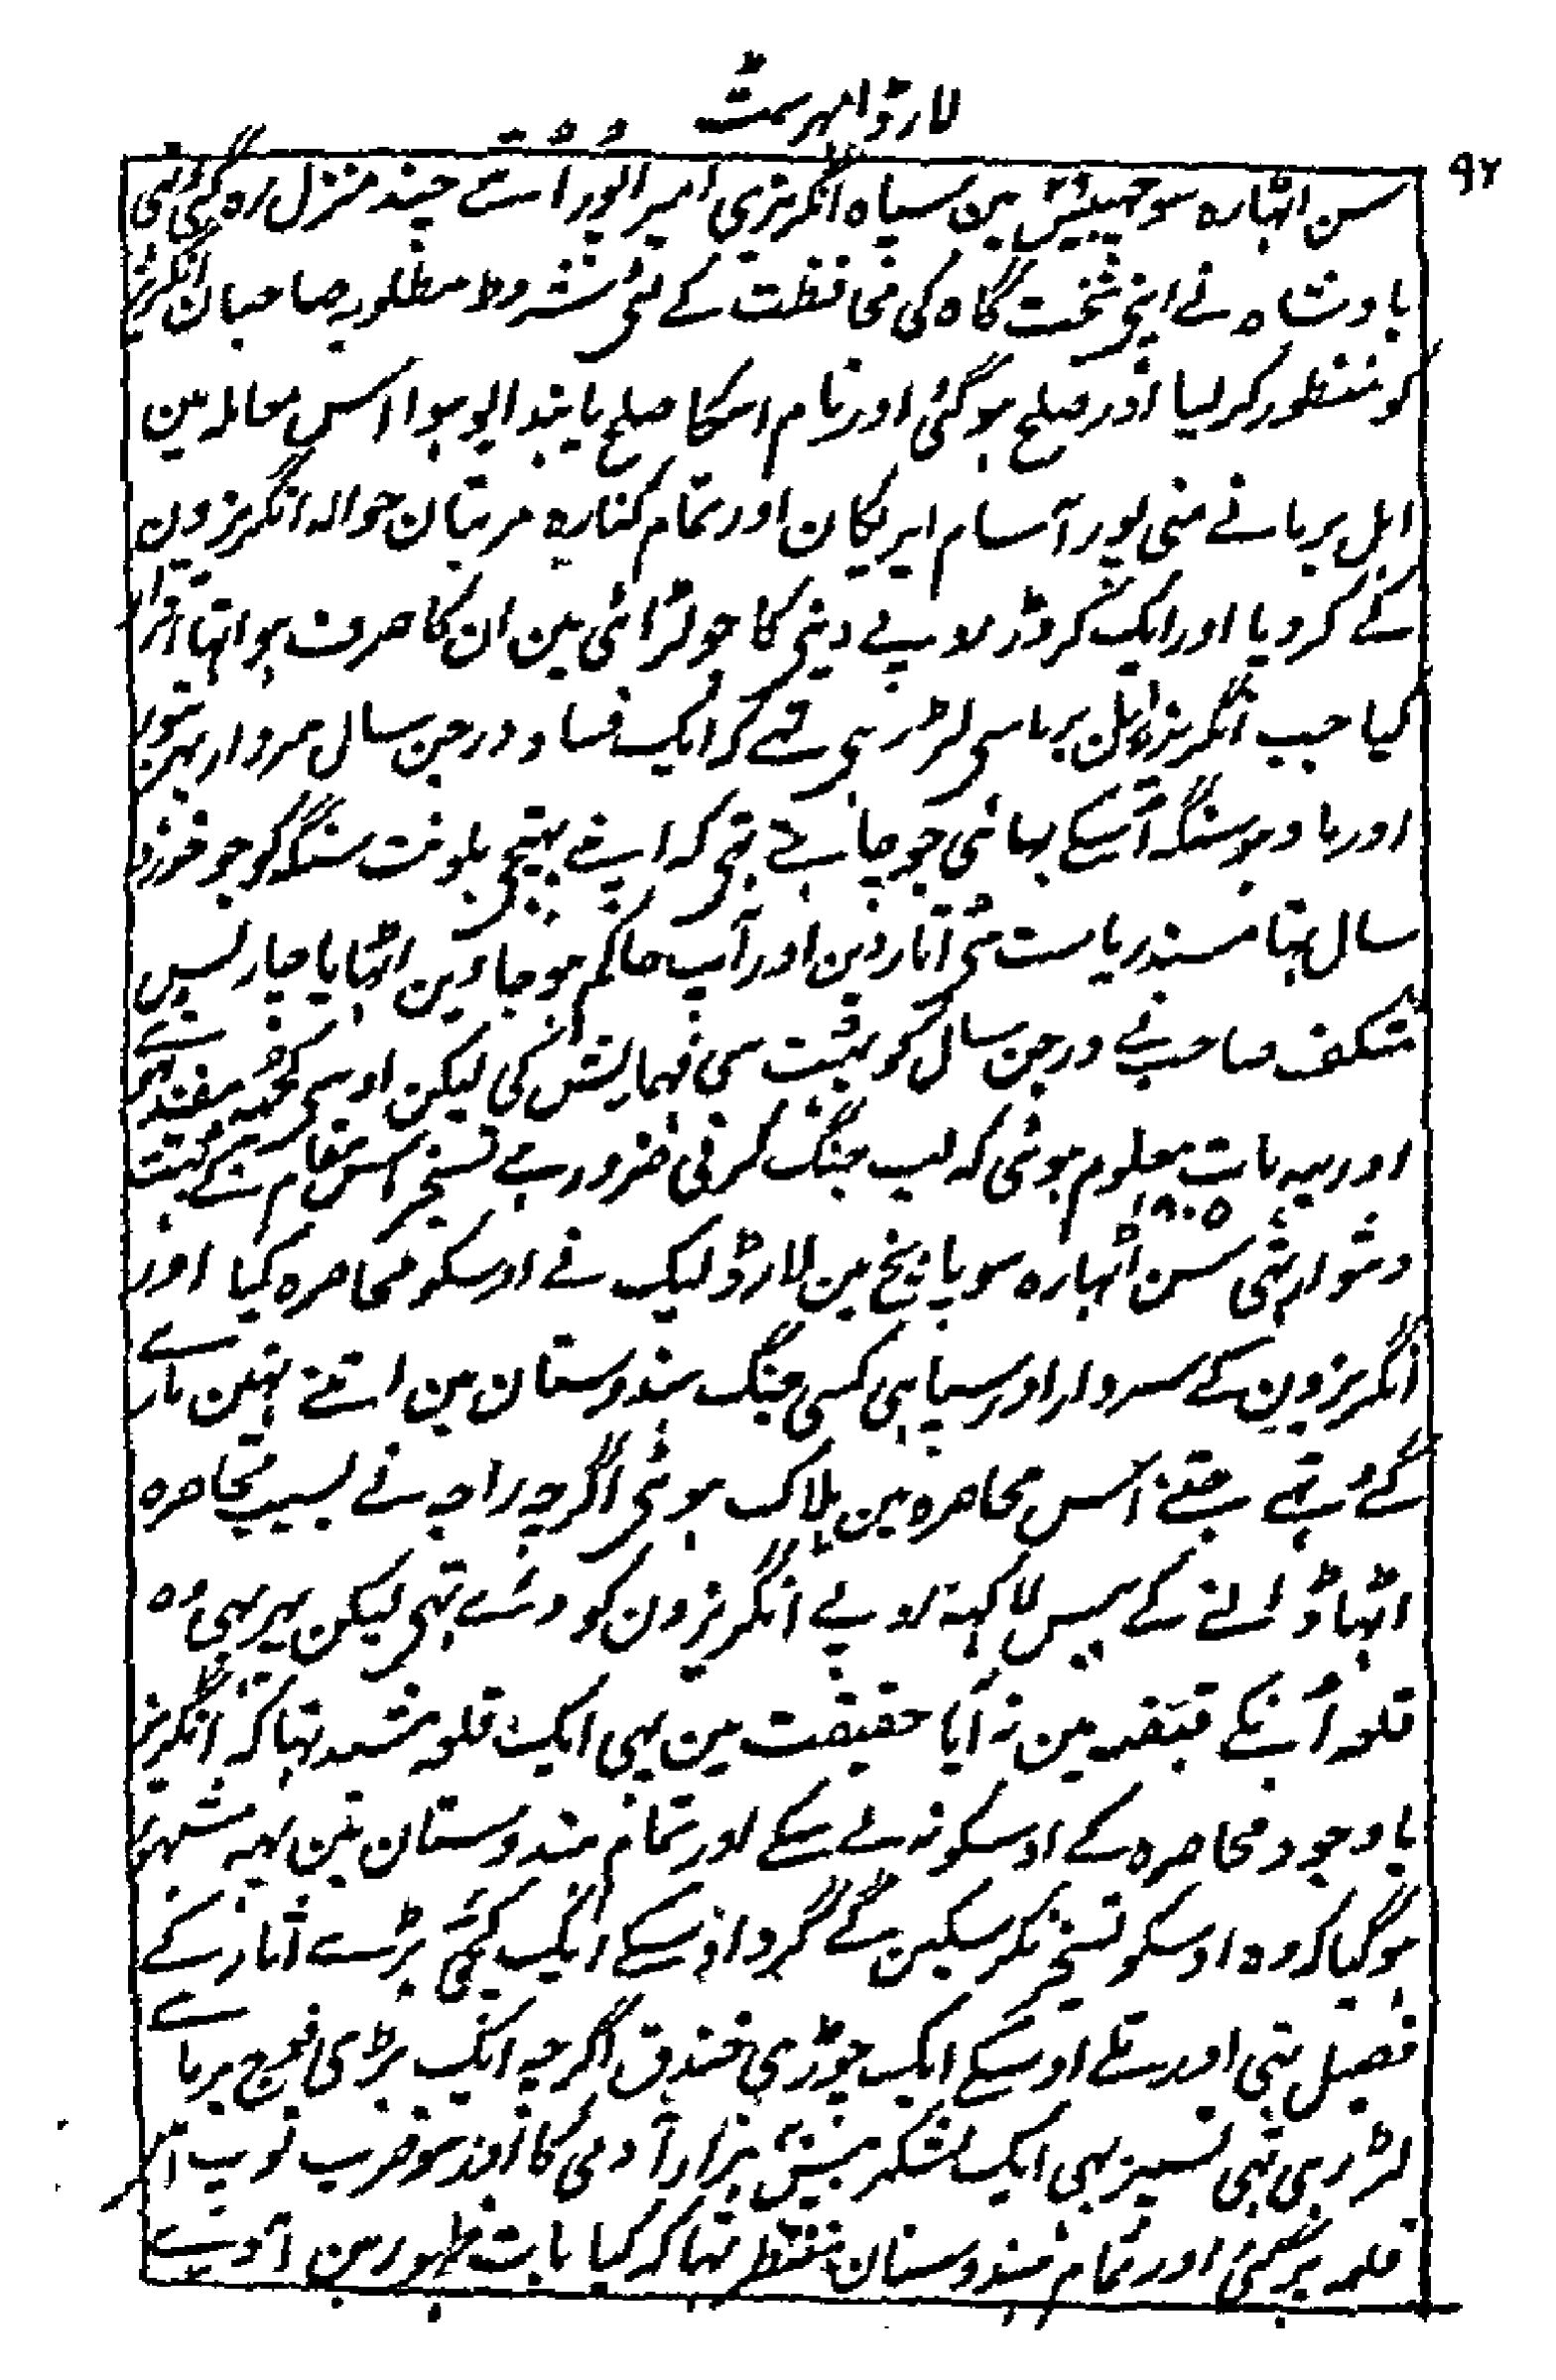 لارڈ امہرسٹ
۹۲
سن اٹہارہ سو چہبیس ۲۶ مین سپاہ انگریزی امیراپورا سے چند منزل رہ گئی تہی
بادشاہ نے اپنی تخت گاہ کی محافظت کے لئی شروط مطلوبہ صاحبان انگریز
کو منظور کر لیا اور صلح ہو گئی اور نام اسکا صلح یاندابو ہوا اس معاملہ مین
اہل برہا نے منی پور آسام ایریکان اور تمام کنارہ مرتبان حوالہ انگریزون
کے کر دیا اور ایک کروڑ روپے دینی کا جو لڑائی مین ان کا صرف ہوا تہا اقرار
کیا جب انگریز اہل برہما سی لڑ رہی تہے کہ ایک فساد درجن سال سردار بہرتپور
اور مادہو سنگہ اُسکے بہائی جو چاہتے تہی کہ اپنے بہتیجی بلونت سنگہ کو جو خورد
سال تہا مسند ریاست سی اتار دین اور آپ حاکم ہو جاوین اٹہایا چارلس
متکف صاحب نے درجن سال کو بہت سی فہمایش کی لیکن اوسی کچہہ مفید نہوئے
اور یہہ بات معلوم ہوئی کہ اب جنگ کرنی ضرور ہے تسخیر اس مقام کے بہت
دشوار تہی سن اٹہارہ سو پانچ ۱۸۰۵ مین لارڈ لیک نے اوسکو محاصرہ کیا اور
انگریزون کے سردار اور سپاہی کسی جنگ ہندوستان مین اتنے نہین مارے
گئے تہے جتنے اس محاصرہ مین ہلاک ہوئی اگرچہ راجہ نے بسبب محاصرہ
اٹہا ڈالنے کے بیس لاکہہ روپے انگریزون کو دئے تہی لیکن پہر بہی وہ
قلعہ اُنکے قبضہ مین نہ آیا حقیقت مین یہی ایک قلعہ تہا کہ انگریز
باوجود محاصرہ کے اوسکو نہ لے سکے اور تمام ہندوستان مین یہہ مشہور
ہو گیا کہ وہ اوسکو تسخیر نکر سکین گے گرد اوسکے ایک کچی بڑے آثار کے
فصیل تہی اور تلے اوسکے ایک چوڑی خندق اگرچہ ایک بڑی فوج برہما سے
لڑ رہی تہی تسپر بہی ایک لشکر بیس ہزار آدمی کا اور سو ضرب توپ اس
قلعہ پر گئی اور تمام ہندوستان منتظر تہا کہ کیا بات ظہور مین آوے